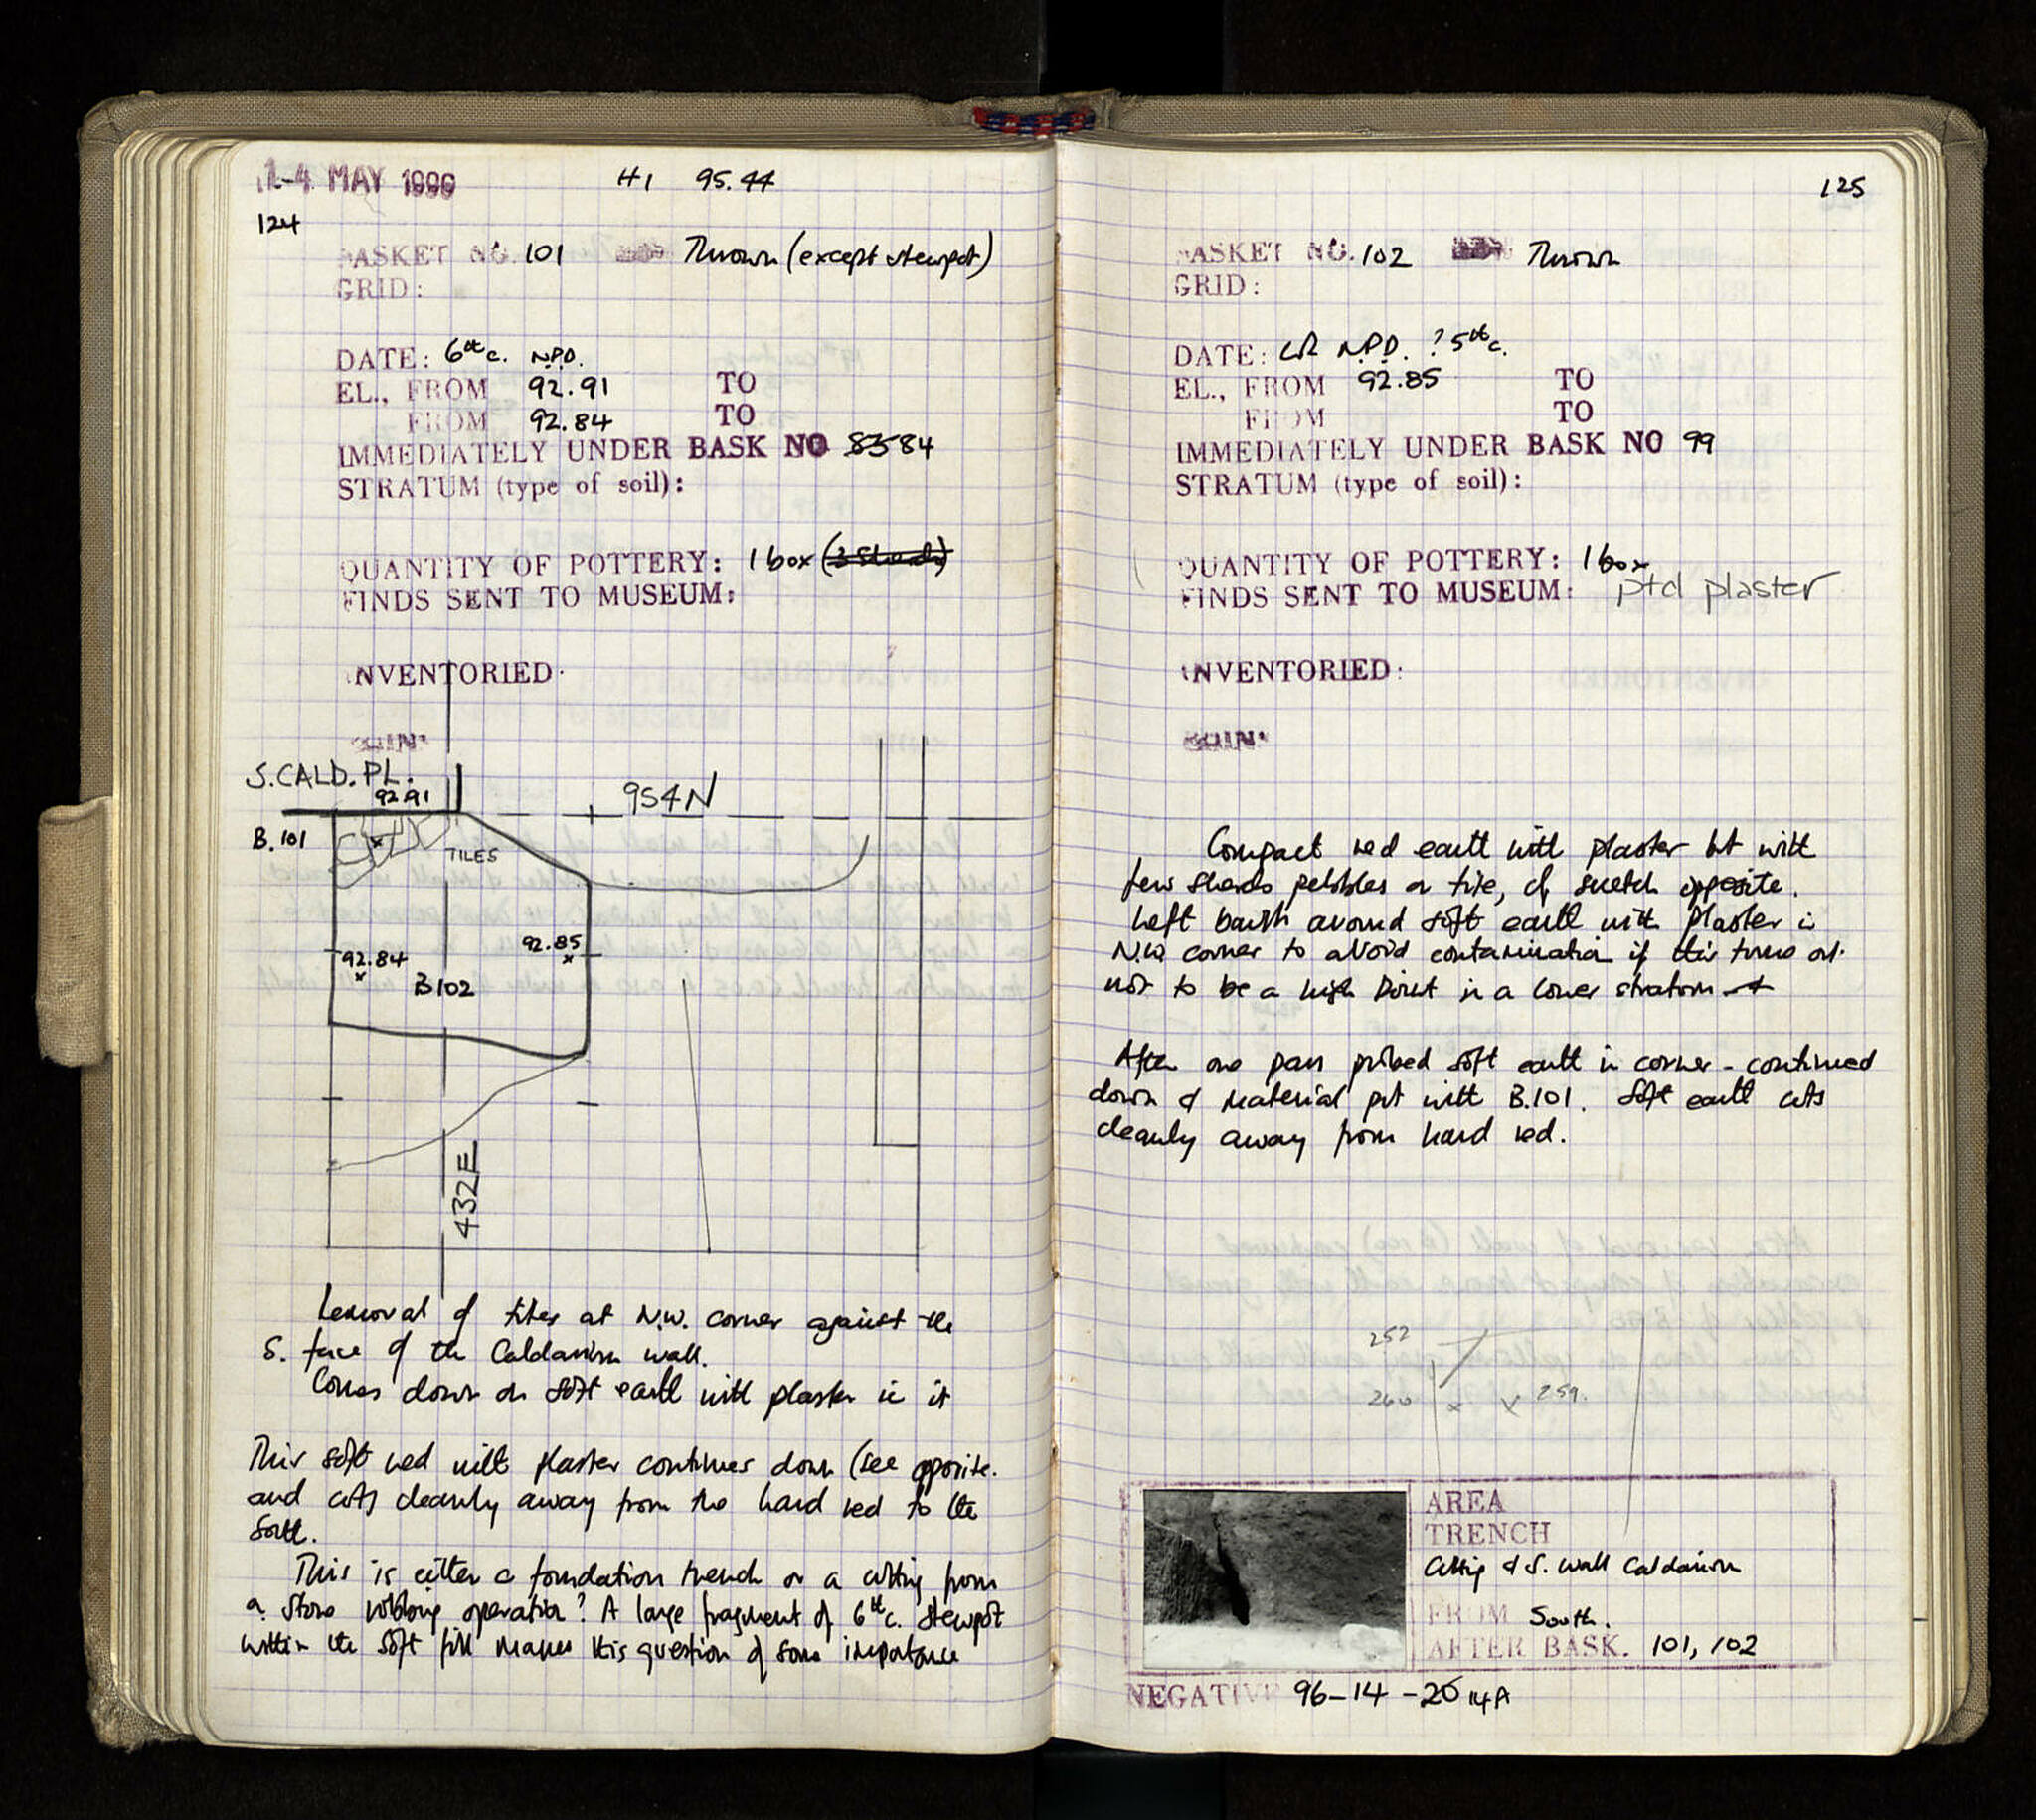 1-4 MAY 1996
H1 95.44
124
BASKET NO. 101 Thrown (except stewpot)
GRID:
DATE: 6th c. N.P.D.
EL., FROM 92.91 TO
FROM 92.84 TO
IMMEDIATELY UNDER BASK NO 83 84
STRATUM (type of soil):
QUANTITY OF POTTERY: 1 box (3 sherds)
FINDS SENT TO MUSEUM:
INVENTORIED:
COIN:
S. CALD. PL.
92.91
954N
B. 101
TILES
92.85
92.84
B102
432E
Removal of tiles at N.W. corner against the
S. face of the Caldarium wall.
Comes down on soft earth with plaster in it
This soft red with plaster continues down (see opposite.
and cuts cleanly away from the hard red to the
South.
This is either a foundation trench or a cutting from
a stone robbing operation? A large fragment of 6th c. stewpot
within the soft fill makes this question of some importance
125
BASKET NO. 102 Thrown
GRID:
DATE: LR N.P.D. ? 5th c.
EL., FROM 92.85 TO
FROM TO
IMMEDIATELY UNDER BASK NO 99
STRATUM (type of soil):
QUANTITY OF POTTERY: 1 box
FINDS SENT TO MUSEUM: ptd plaster
INVENTORIED:
COIN:
Compact red earth with plaster but with
few sherds pebbles or tile, cf sketch opposite.
Left baulk around soft earth with plaster in
N.W. corner to avoid contamination if this turns out
not to be a high point in a lower stratum
After one pass probed soft earth in corner - continued
down & material put with B.101. Soft earth cuts
cleanly away from hard red.
252
260
259.
AREA
TRENCH
Cutting & S. wall Caldarium
FROM South.
AFTER BASK. 101, 102
NEGATIVE 96-14-20 14A